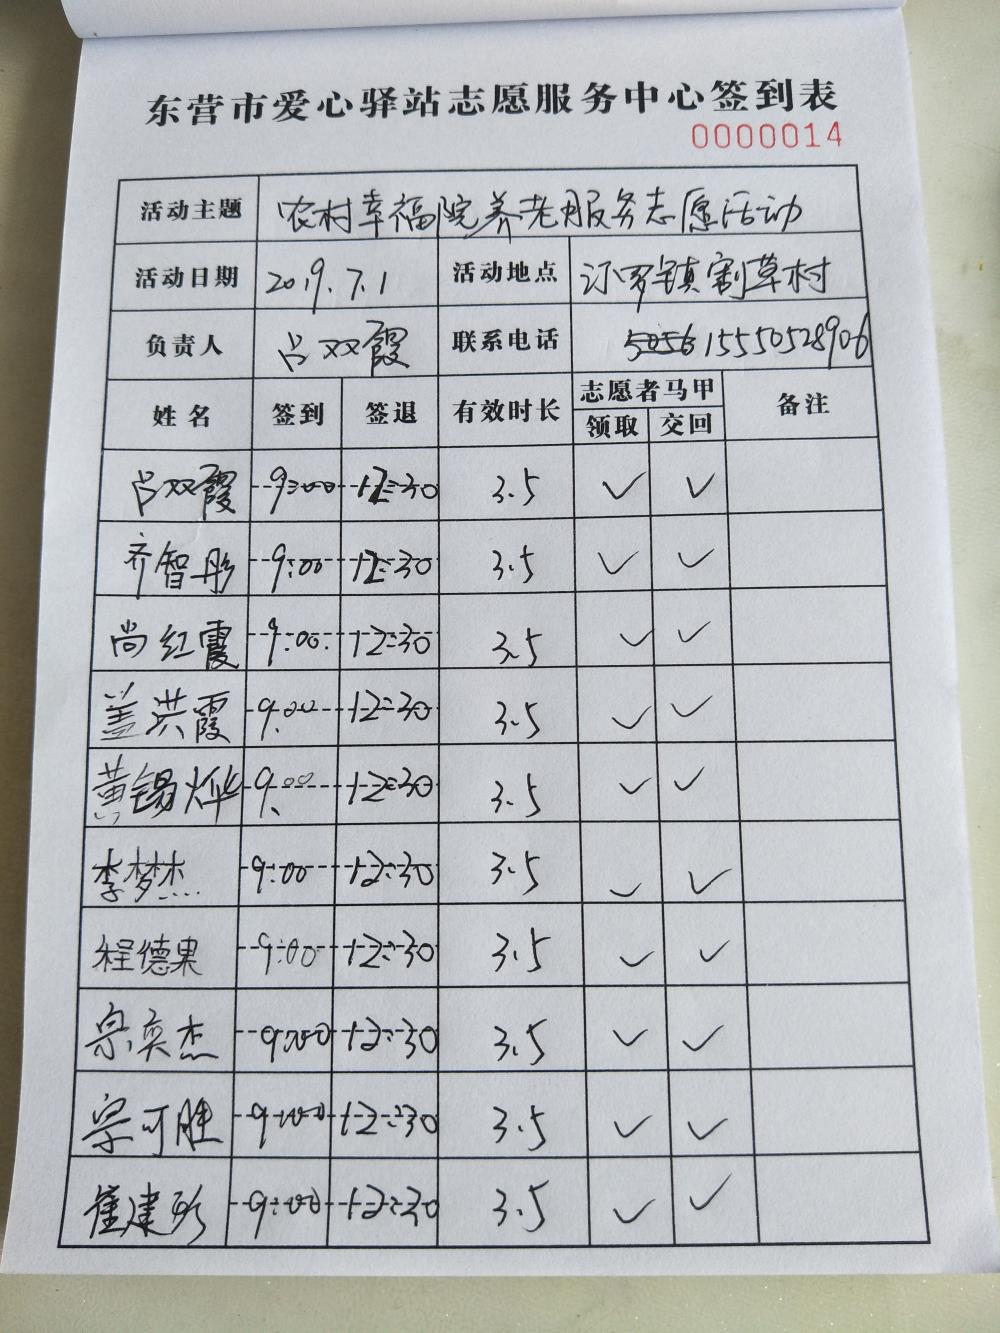 东营市爱心驿站志愿服务中心签到表
0000014
活动主题 农村幸福院养老服务志愿活动
活动日期 2019.7.1 活动地点 汀罗镇割草村
负责人 吕双霞 联系电话 15550528906
姓名 签到 签退 有效时长 志愿者马甲 领取 交回 备注
吕双霞 9:00 12:30 3.5 ✓ ✓
齐智彤 9:00 12:30 3.5 ✓ ✓
尚红霞 9:00 12:30 3.5 ✓ ✓
盖洪霞 9:00 12:30 3.5 ✓ ✓
黄锡烨 9:00 12:30 3.5 ✓ ✓
李梦杰 9:00 12:30 3.5 ✓ ✓
程德果 9:00 12:30 3.5 ✓ ✓
宗奕杰 9:00 12:30 3.5 ✓ ✓
宗可胜 9:00 12:30 3.5 ✓ ✓
崔建 9:00 12:30 3.5 ✓ ✓